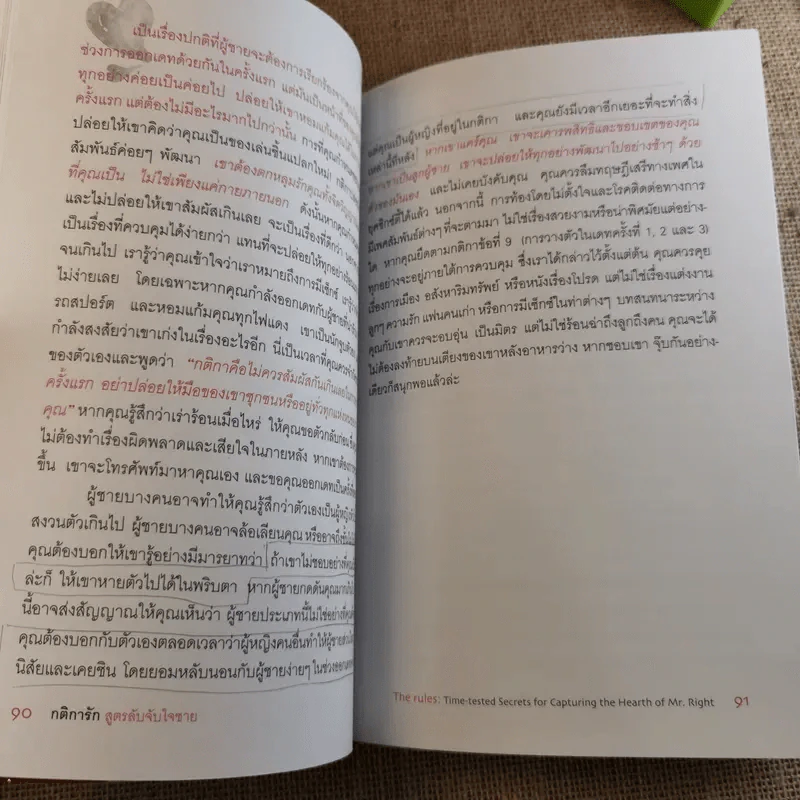 เป็นเรื่องปกติที่ผู้ชายจะต้องการเรียกร้องจาก
ช่วงการออกเดทด้วยกันในครั้งแรก แต่มันเป็นหน้าที่
ทุกอย่างค่อยเป็นค่อยไป ปล่อยให้เขาหอมแก้มคุณ
ครั้งแรก แต่ต้องไม่มีอะไรมากไปกว่านั้น การที่คุณ
ปล่อยให้เขาคิดว่าคุณเป็นของเล่นชิ้นแปลกใหม่!
สัมพันธ์ค่อยๆ พัฒนา เขาต้องตกหลุมรักคุณทั้ง
ที่คุณเป็น ไม่ใช่เพียงแค่กายภายนอก ดังนั้นหากคุณ
และไม่ปล่อยให้เขาสัมผัสเกินเลย จะเป็นเรื่องที่ดีกว่า
เป็นเรื่องที่ควบคุมได้ง่ายกว่า แทนที่จะปล่อยให้ทุกอย่าง
จนเกินไป เรารู้ว่าคุณเข้าใจว่าเราหมายถึงการมีเซ็กซ์
ไม่ง่ายเลย โดยเฉพาะหากคุณกำลังออกเดทกับผู้ชาย
รถสปอร์ต และหอมแก้มคุณทุกไฟแดง เขาเป็นนักจูบ
กำลังสงสัยว่าเขาเก่งในเรื่องอะไรอีก นี่เป็นเวลาที่คุณควร
ของตัวเองและพูดว่า "กติกาคือไม่ควรสัมผัสกันเกินเลย
ครั้งแรก อย่าปล่อยให้มือของเขาซุกซนหรืออยู่ทั่วทุกแห่ง
คุณ" หากคุณรู้สึกว่าเร่าร้อนเมื่อไหร่ ให้คุณขอตัวกลับก่อน
ไม่ต้องทำเรื่องผิดพลาดและเสียใจในภายหลัง หากเขาต้อง
ขึ้น เขาจะโทรศัพท์มาหาคุณเอง และขอคุณออกเดทเป็นครั้ง
ผู้ชายบางคนอาจทำให้คุณรู้สึกว่าตัวเองเป็นผู้หญิง
สงวนตัวเกินไป ผู้ชายบางคนอาจล้อเลียนคุณ หรืออาจถึงขั้น
คุณต้องบอกให้เขารู้อย่างมีมารยาทว่า ถ้าเขาไม่ชอบอย่าง
ล่ะก็ ให้เขาหายตัวไปได้ในพริบตา หากผู้ชายกดดันคุณมาก
นี้อาจส่งสัญญาณให้คุณเห็นว่า ผู้ชายประเภทนี้ไม่ใช่อย่างที่
คุณต้องบอกกับตัวเองตลอดเวลาว่าผู้หญิงคนอื่นทำให้ผู้ชาย
นิสัยและเคยชิน โดยยอมหลับนอนกับผู้ชายง่ายๆ ในช่วงออก
90 กติการัก สูตรลับจับใจชาย
แต่คุณเป็นผู้หญิงที่อยู่ในกติกา และคุณยังมีเวลาอีกเยอะที่จะทำสิ่ง
เหล่านี้ทีหลัง หากเขาแคร์คุณ เขาจะเคารพสิทธิและขอบเขตของคุณ
หากเขาเป็นลูกผู้ชาย เขาจะปล่อยให้ทุกอย่างพัฒนาไปอย่างช้าๆ ด้วย
ตัวของมันเอง และไม่เคยบังคับคุณ คุณควรลืมทฤษฎีเสรีทางเพศใน
ยุคซิกซ์ตี้ได้แล้ว นอกจากนี้ การท้องโดยไม่ตั้งใจและโรคติดต่อทางการ
มีเพศสัมพันธ์ต่างๆ ที่จะตามมา ไม่ใช่เรื่องสวยงามหรือน่าพิศมัยแต่อย่าง-
ใด หากคุณยึดตามกติกาข้อที่ 9 (การวางตัวในเดทครั้งที่ 1, 2 และ 3)
ทุกอย่างจะอยู่ภายใต้การควบคุม ซึ่งเราได้กล่าวไว้ตั้งแต่ต้น คุณควรคุย
เรื่องการเมือง อสังหาริมทรัพย์ หรือหนังเรื่องโปรด แต่ไม่ใช่เรื่องแต่งงาน
ลูกๆ ความรัก แฟนคนเก่า หรือการมีเซ็กซ์ในท่าต่างๆ บทสนทนาระหว่าง
คุณกับเขาควรจะอบอุ่น เป็นมิตร แต่ไม่ใช่ร้อนฉ่าถึงลูกถึงคน คุณจะได้
ไม่ต้องลงท้ายบนเตียงของเขาหลังอาหารว่าง หากชอบเขา จุ๊บกันอย่าง-
เดียวก็สนุกพอแล้วล่ะ
The rules: Time-tested Secrets for Capturing the Hearth of Mr. Right 91